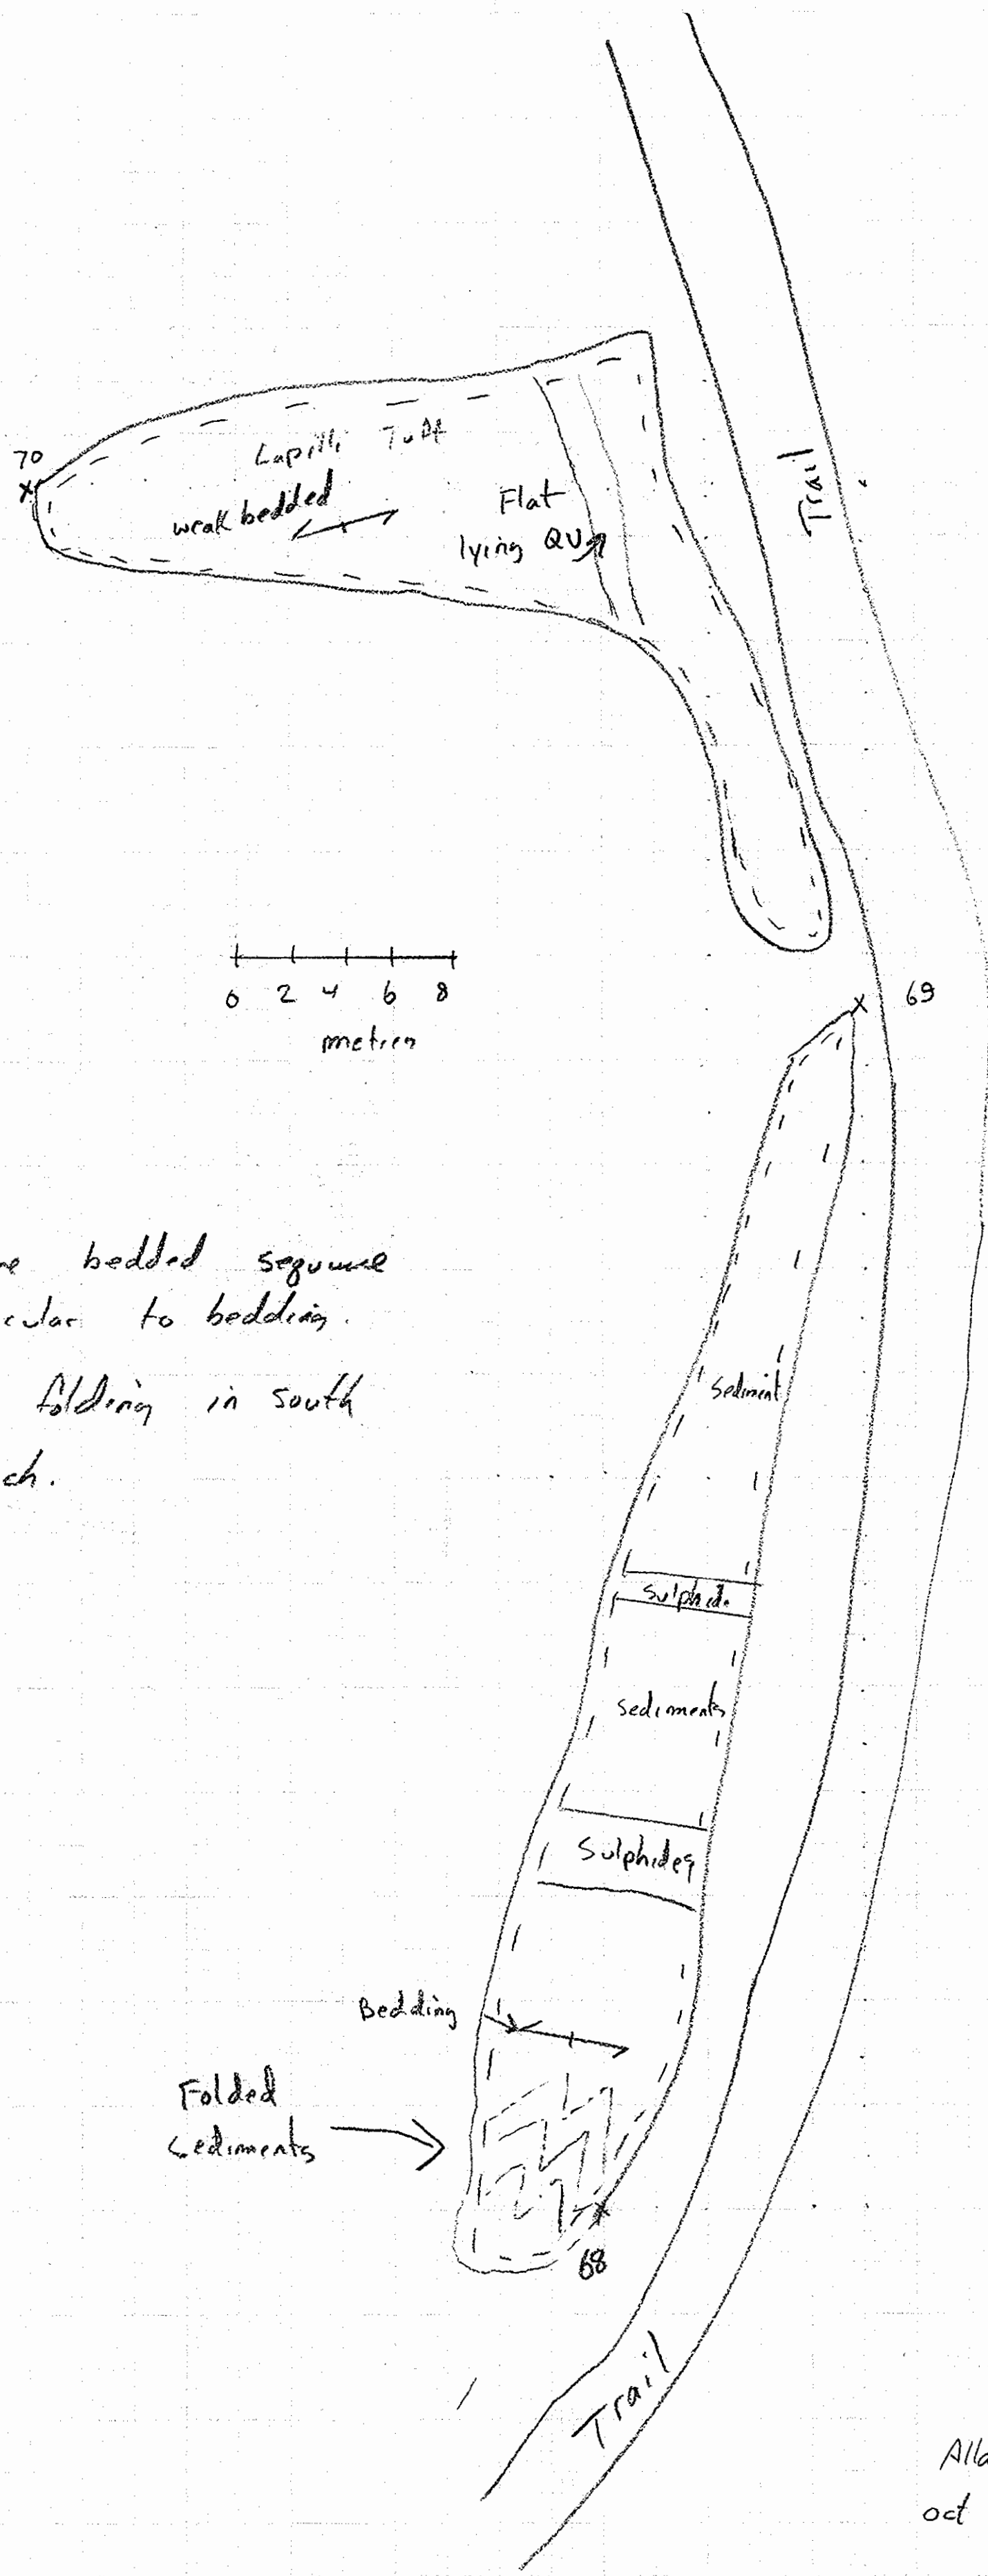 Trail
70
Lapilli Tuff
weak bedded
Flat
lying QV
0 2 4 6 8
metres
69
bedded sequence
to bedding.
folding in south
ch.
Sediment
Sulphide
Sediments
Sulphides
Bedding
Folded
Sediments
68
Trail
Alla
oct